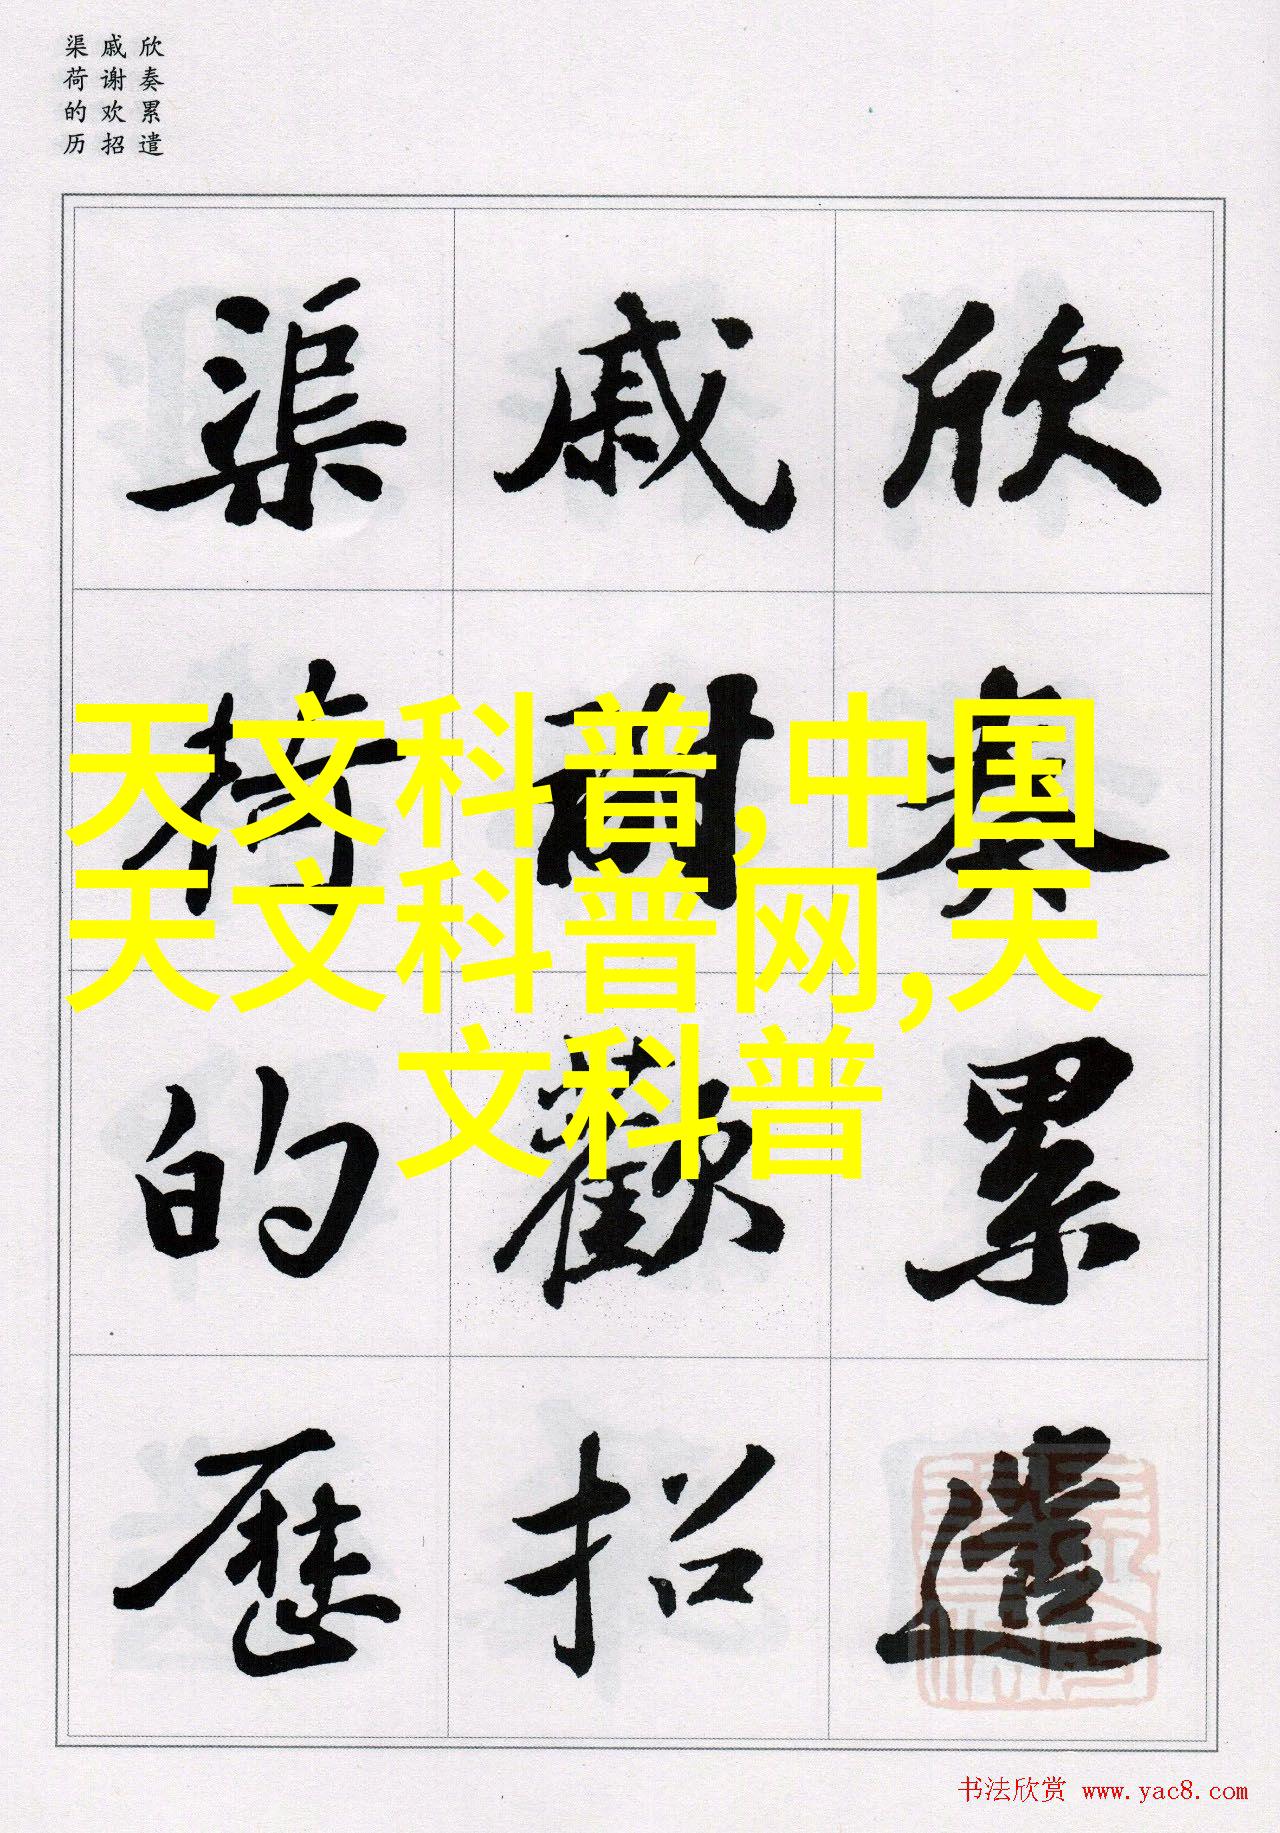 欣奏累遣
戚谢欢招
渠荷的历
欣奏累遣
戚謝歡招
渠荷的歷
天文科普,中国
天文科普网,天
文科普
书法欣赏 www.yac8.com